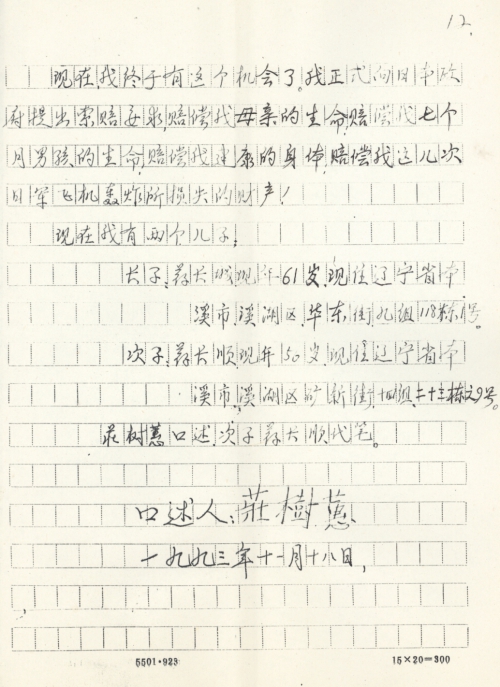 12.
现在我终于有这个机会了。我正式向日本政
府提出索赔要求，赔偿我母亲的生命，赔偿我七个
月男孩的生命，赔偿我健康的身体，赔偿我这几次
日军飞机轰炸所损失的财产！
现在我有两个儿子；
长子：薛长城现年61岁，现住辽宁省本
溪市，溪湖区，华东街，九组118栋1号。
次子：薛长顺，现年50岁，现住辽宁省本
溪市，溪湖区矿新街，十四组，二十三栋之9号。
莊树蕙口述，次子薛长顺代笔。
口述人：莊樹蕙
一九九三年十一月十八日，
5501·923
15×20=300